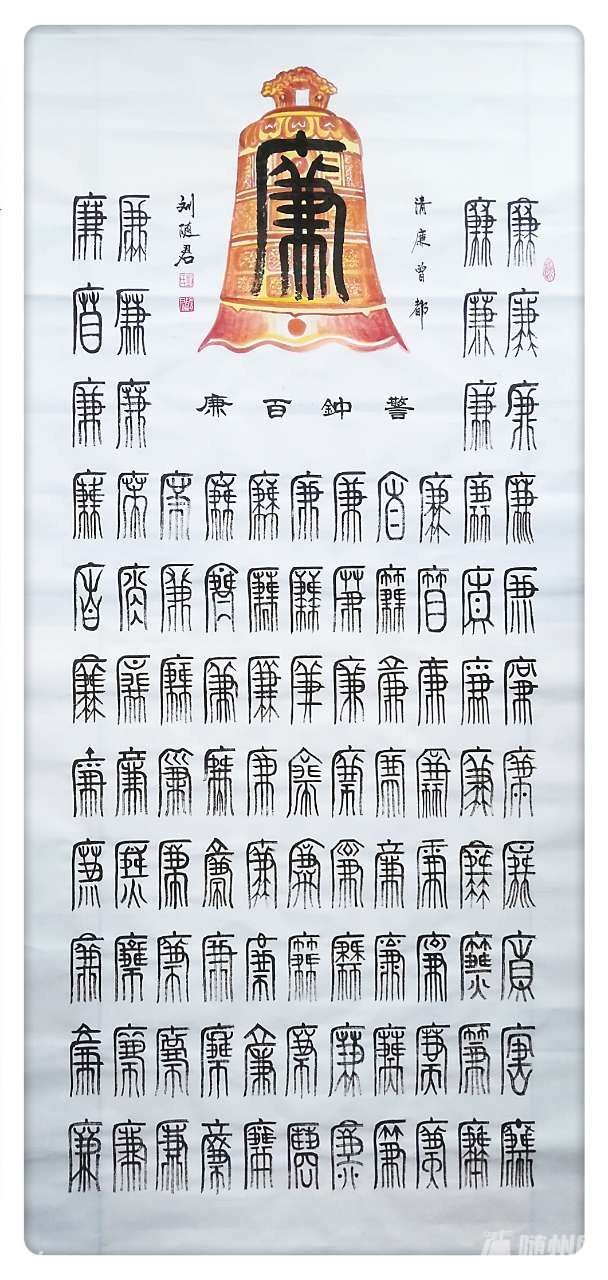 廉
清廉曾都
刘随君
警鈡百廉
廉廉廉廉
廉廉廉廉
廉廉廉廉
廉廉廉廉廉廉廉廉廉廉廉
廉廉廉廉廉廉廉廉廉廉廉
廉廉廉廉廉廉廉廉廉廉廉
廉廉廉廉廉廉廉廉廉廉廉
廉廉廉廉廉廉廉廉廉廉廉
廉廉廉廉廉廉廉廉廉廉廉
廉廉廉廉廉廉廉廉廉廉廉
廉廉廉廉廉廉廉廉廉廉廉
随州